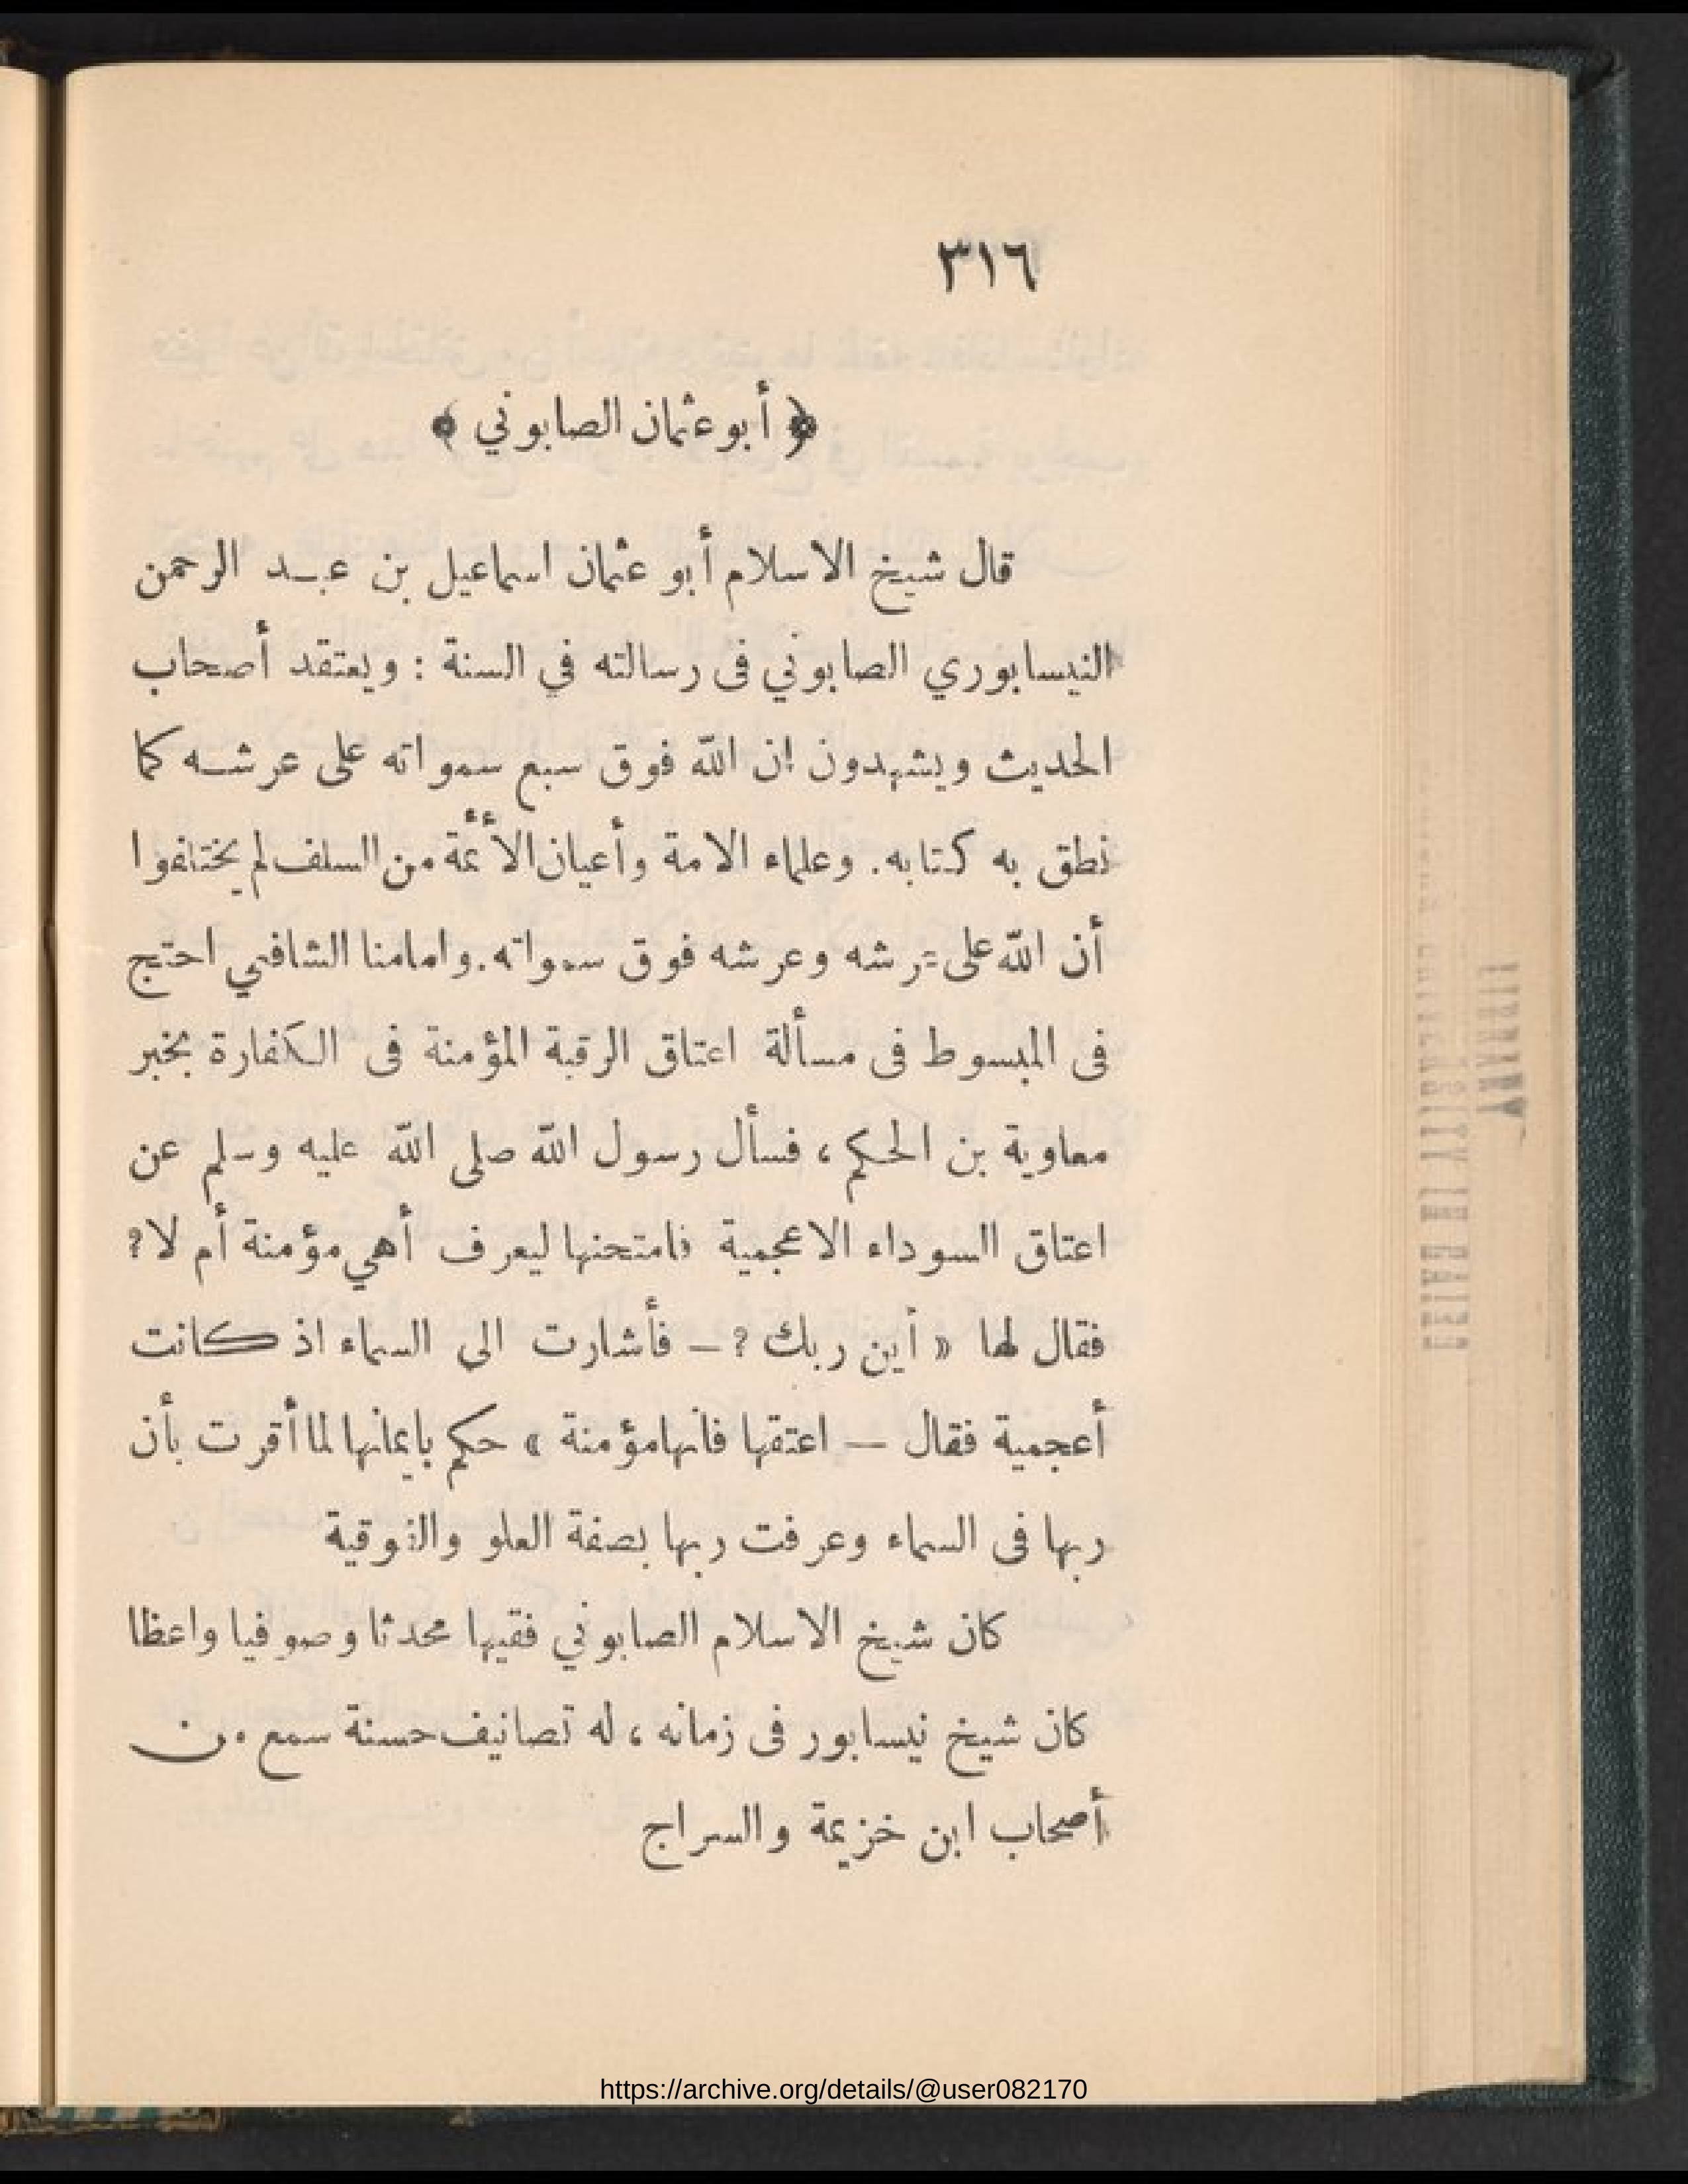 ٣١٦
﴿ أبو عثمان الصابوني ﴾
قال شيخ الاسلام أبو عثمان اسماعيل بن عبد الرحمن
النيسابوري الصابوني فى رسالته في السنة : ويعتقد أصحاب
الحديث ويشهدون إن الله فوق سبع سمواته على عرشه كما
نطق به كتابه. وعلماء الامة وأعيان الأئمة من السلف لم يختلفوا
أن الله على عرشه وعرشه فوق سمواته. وامامنا الشافعي احتج
فى المبسوط فى مسألة اعتاق الرقبة المؤمنة فى الكفارة بخبر
معاوية بن الحكم ، فسأل رسول الله صلى الله عليه وسلم عن
اعتاق السوداء الاعجمية فامتحنها ليعرف أهي مؤمنة أم لا؟
فقال لها « أين ربك ؟ — فأشارت الى السماء اذ كانت
أعجمية فقال — اعتقها فانها مؤمنة » حكم بايمانها لما أقرت بأن
ربها فى السماء وعرفت ربها بصفة العلو والفوقية
كان شيخ الاسلام الصابوني فقيها محدثا وصوفيا واعظا
كان شيخ نيسابور فى زمانه ، له تصانيف حسنة سمع من
أصحاب ابن خزيمة والسراج
https://archive.org/details/@user082170